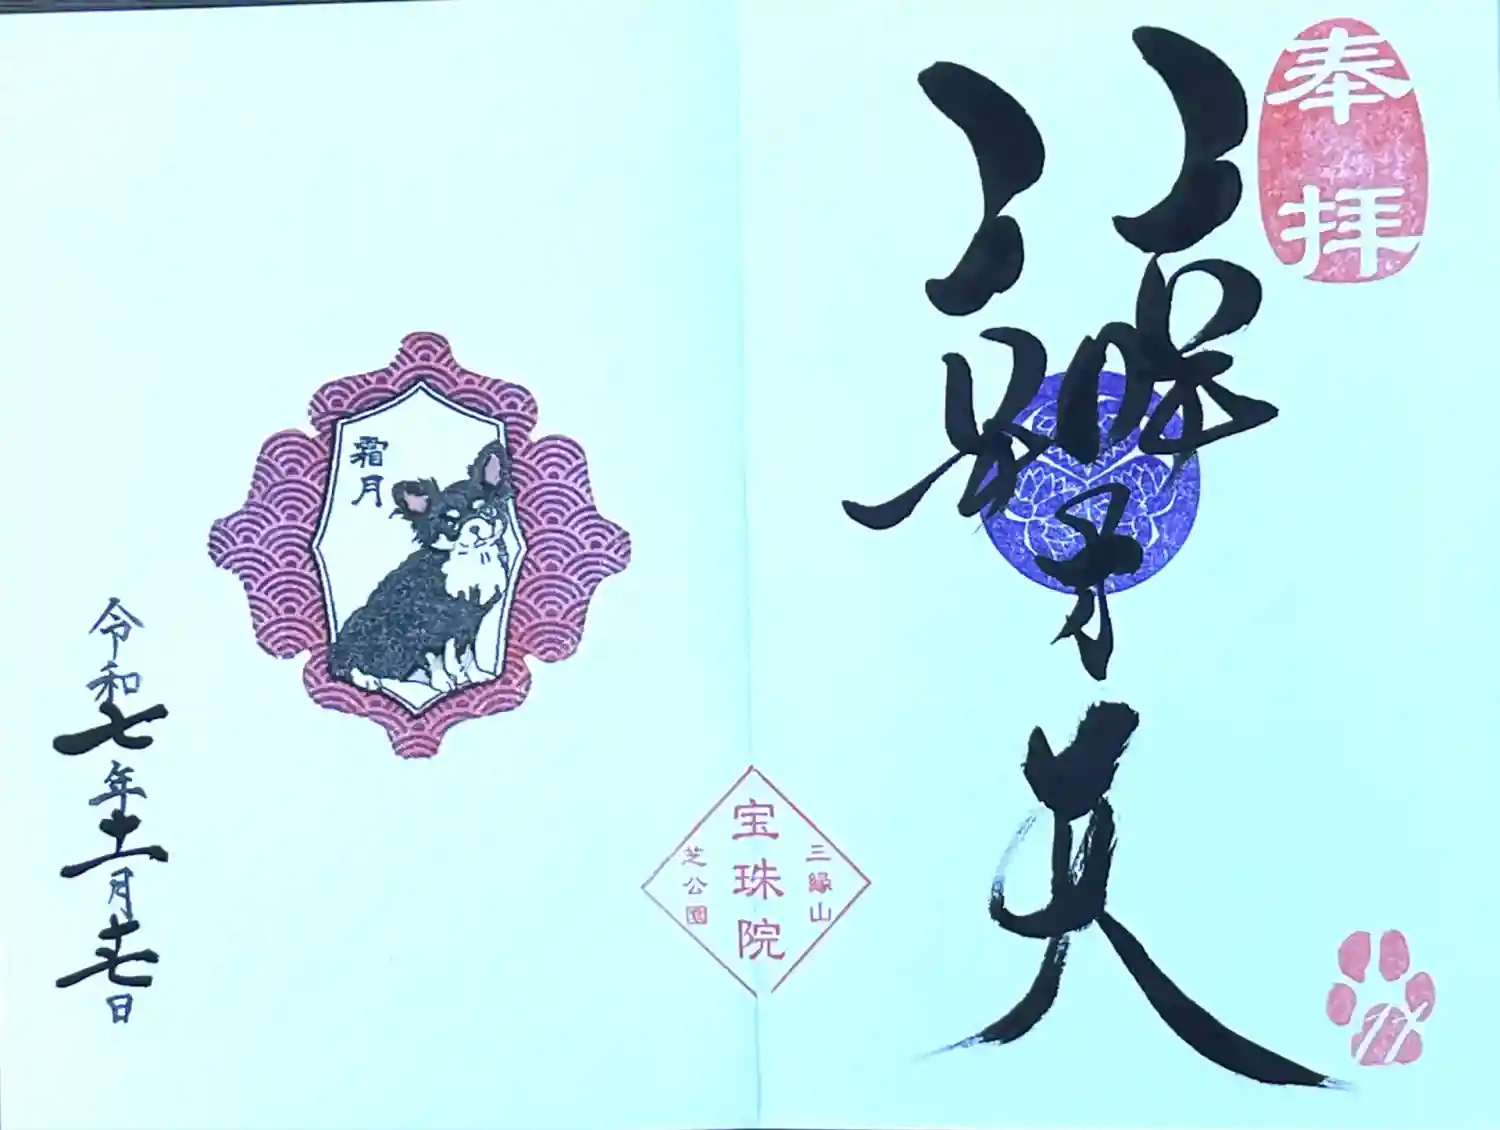 奉拝
才天
三縁山
宝珠院
芝公園
霜月
令和七年十一月十七日